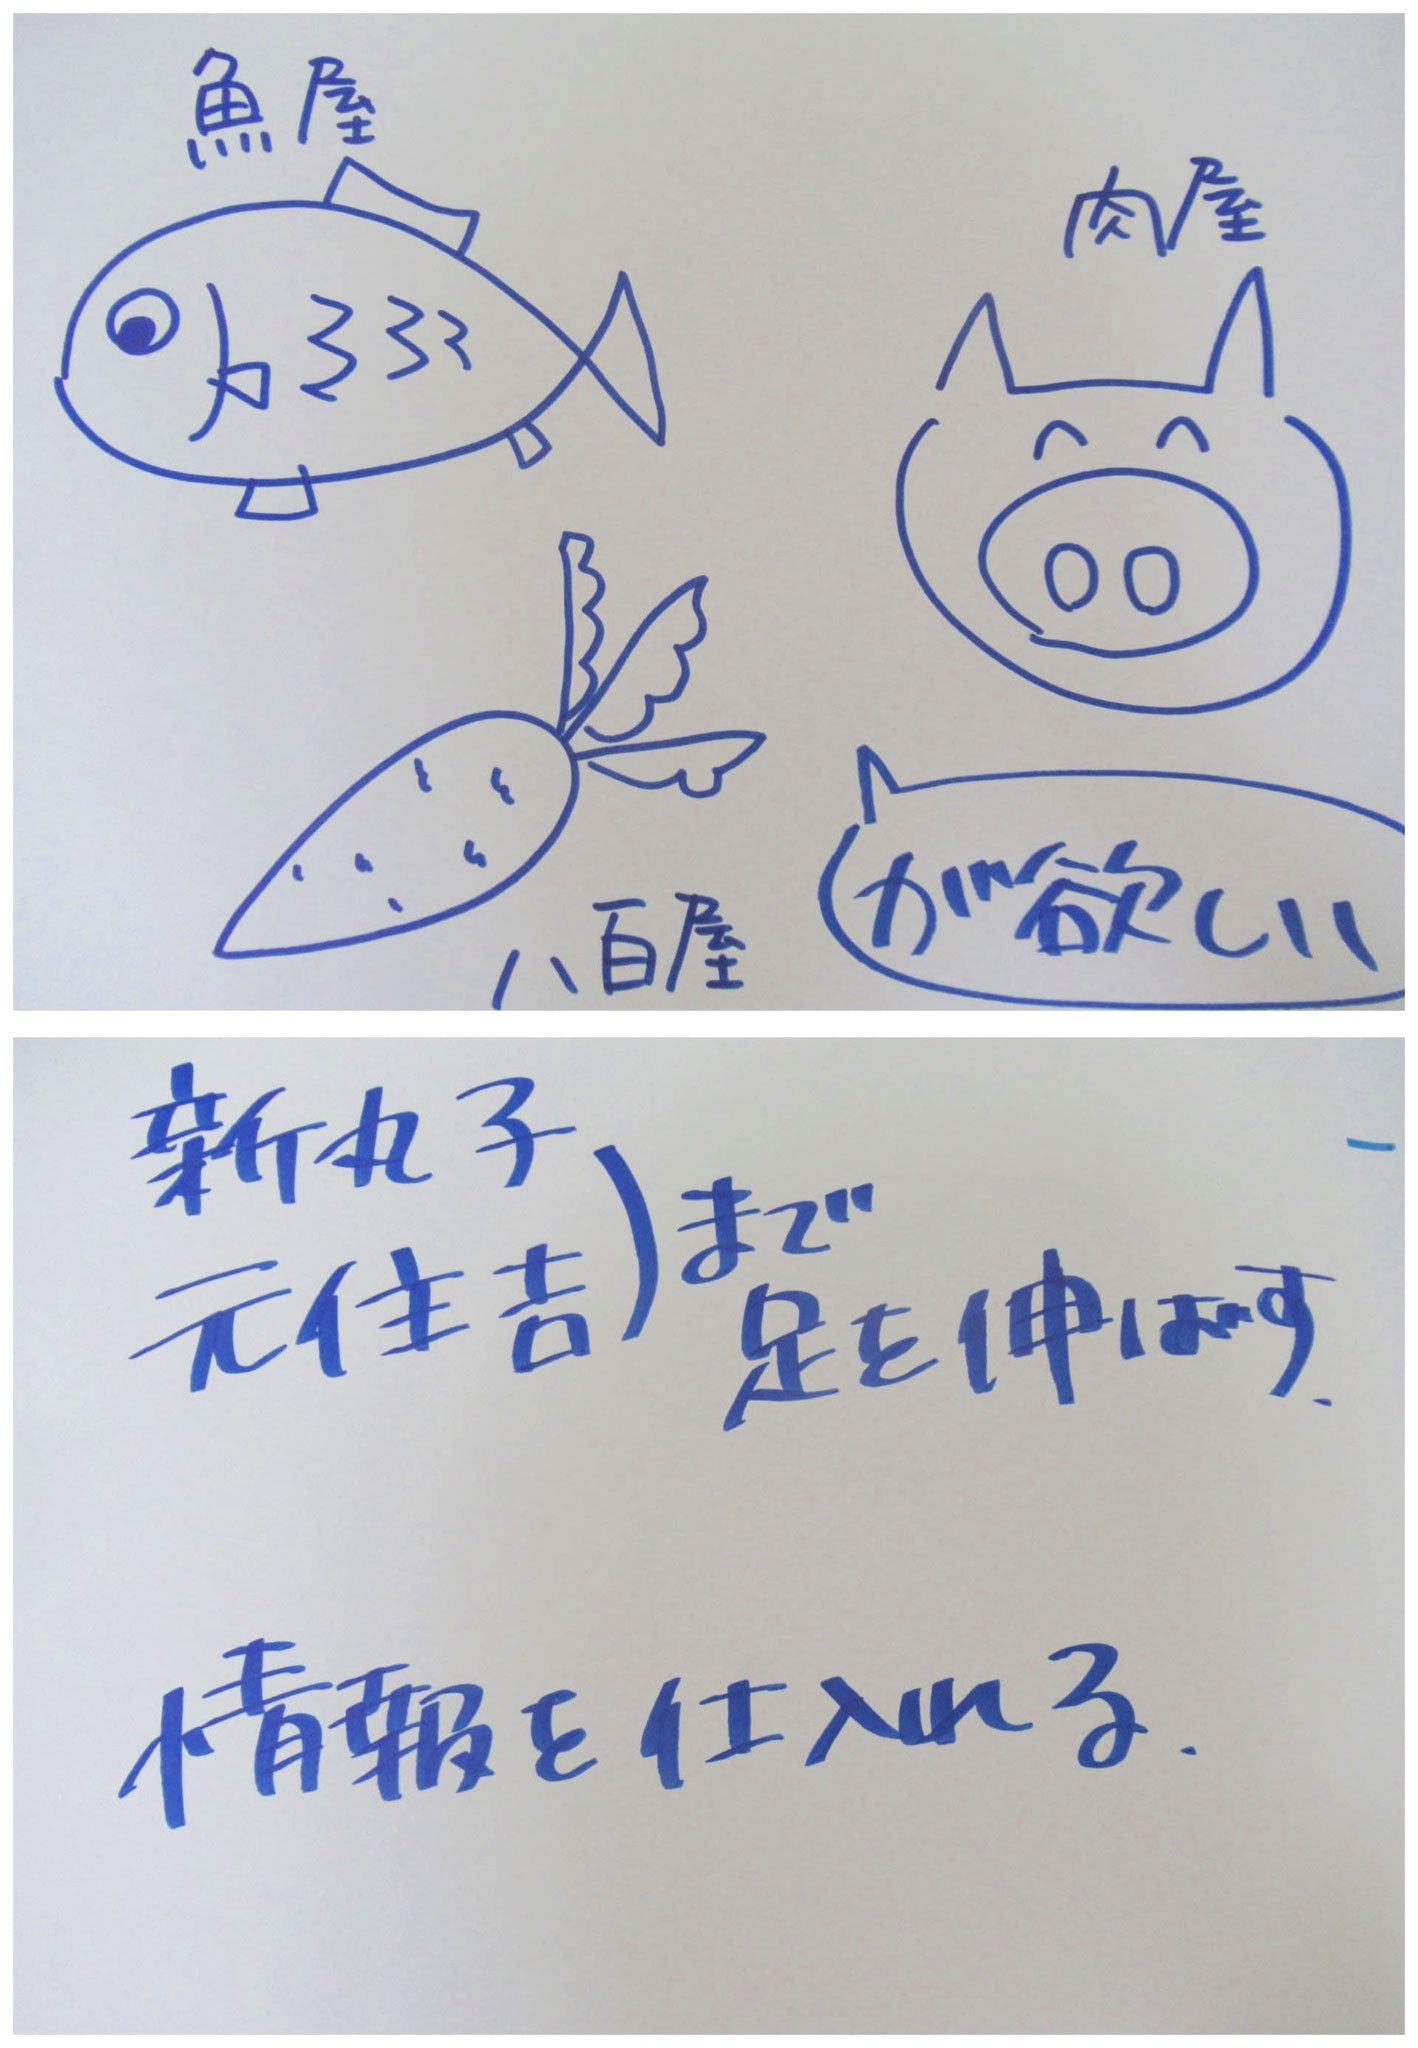 魚屋
肉屋
八百屋
が欲しい
新丸子
元住吉
)まで
足を伸ばす.
情報を仕入れる.